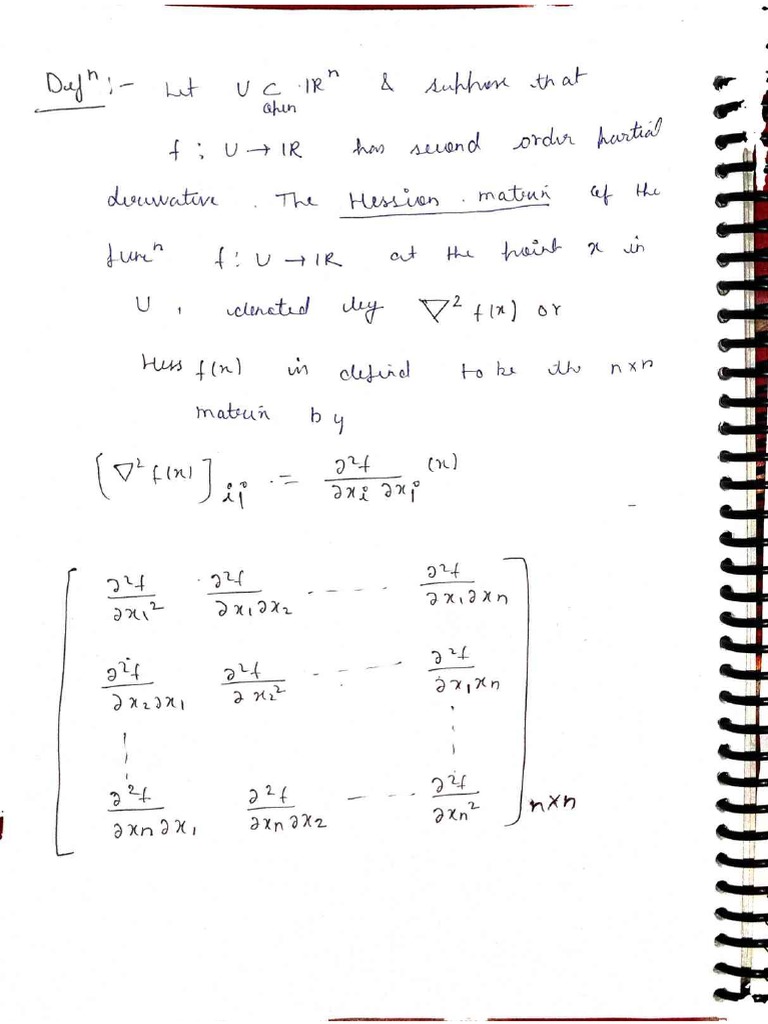 Defⁿ :- Let U ⊂ ℝⁿ & suppose that
open
f : U → ℝ has second order partial
derivative . The Hession matrix of the
funcⁿ f : U → ℝ at the point x in
U , denoted by ∇² f(x) or
Hess f(x) is defined to be the n×n
matrix by
[∇² f(x)]ᵢⱼ := ∂²f/∂xᵢ ∂xⱼ (x)
[ ∂²f/∂x₁² ∂²f/∂x₁∂x₂ ---- ∂²f/∂x₁∂xₙ
∂²f/∂x₂∂x₁ ∂²f/∂x₂² ---- ∂²f/∂x₁xₙ
∂²f/∂xₙ∂x₁ ∂²f/∂xₙ∂x₂ ---- ∂²f/∂xₙ² ] n×n